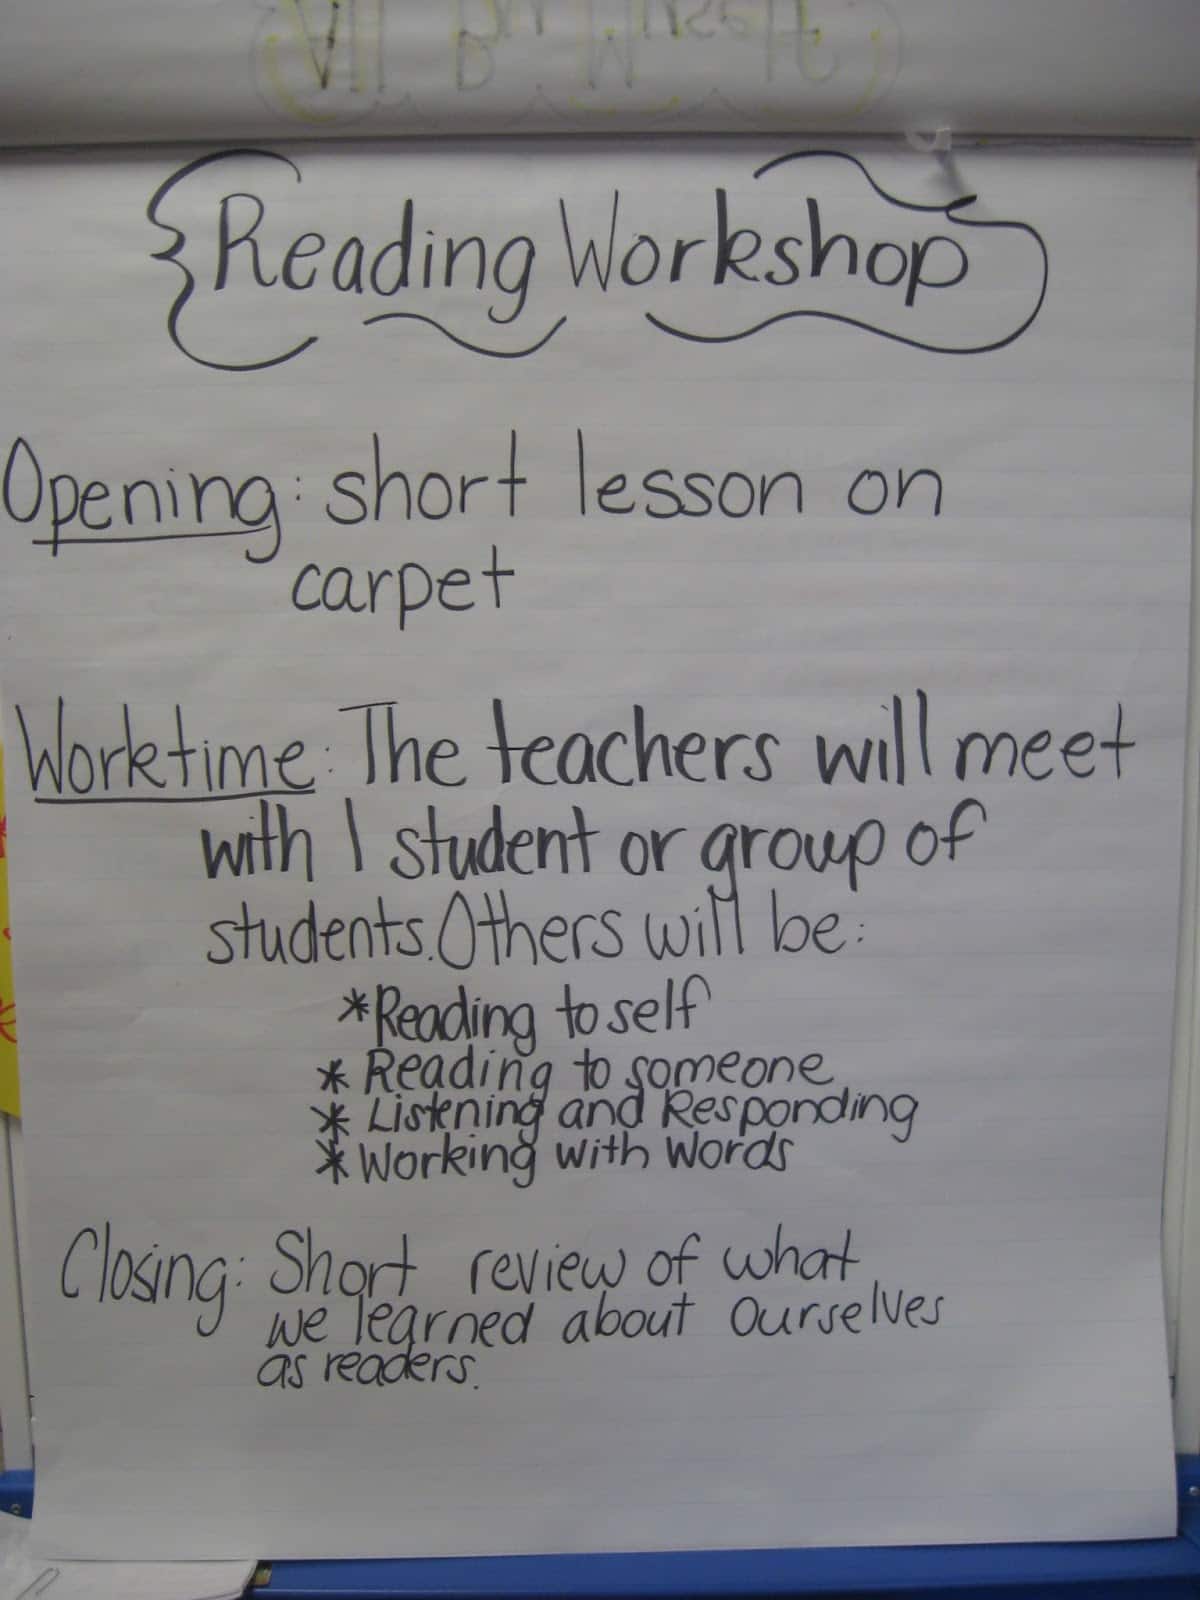 Reading Workshop
Opening: short lesson on
carpet
Worktime: The teachers will meet
with 1 student or group of
students. Others will be:
*Reading to self
* Reading to someone
* Listening and Responding
* Working with Words
Closing: Short review of what
we learned about ourselves
as readers.